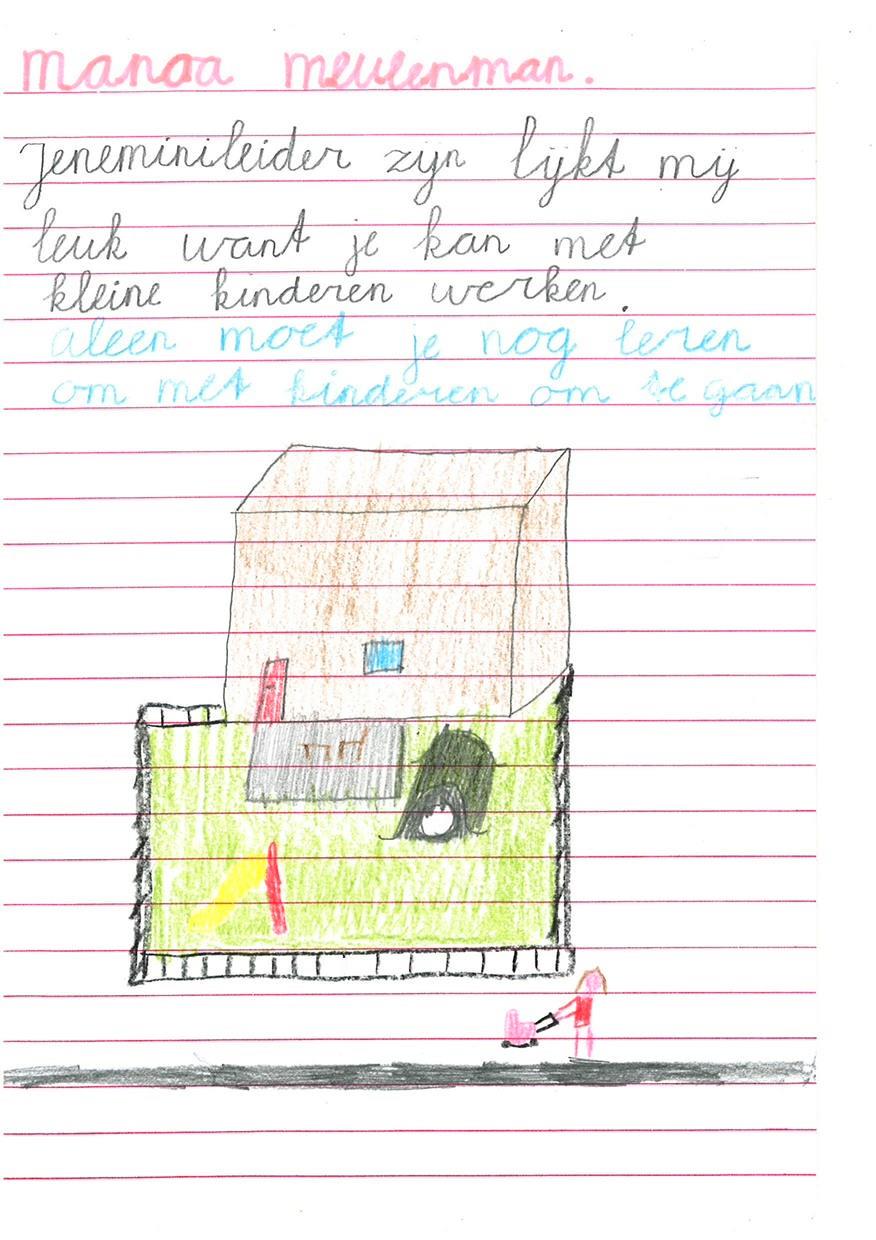 manoa meulenman.
Jeneminileider zijn lijkt mij
leuk want je kan met
kleine kinderen werken.
aleen moet je nog leren
om met kinderen om te gaan